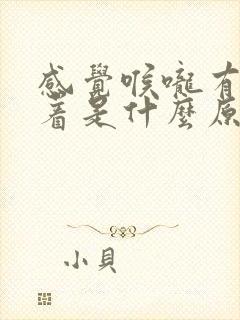 感覺喉嚨有
著是什麼原
小貝